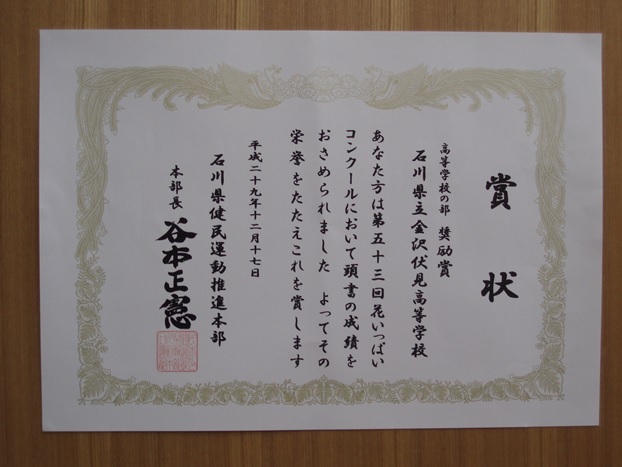 賞状
高等学校の部 奨励賞
石川県立金沢伏見高等学校
あなた方は第五十三回花いっぱい
コンクールにおいて頭書の成績を
おさめられました よってその
栄誉をたたえこれを賞します
平成二十九年十二月十七日
石川県健民運動推進本部
本部長 谷本正憲